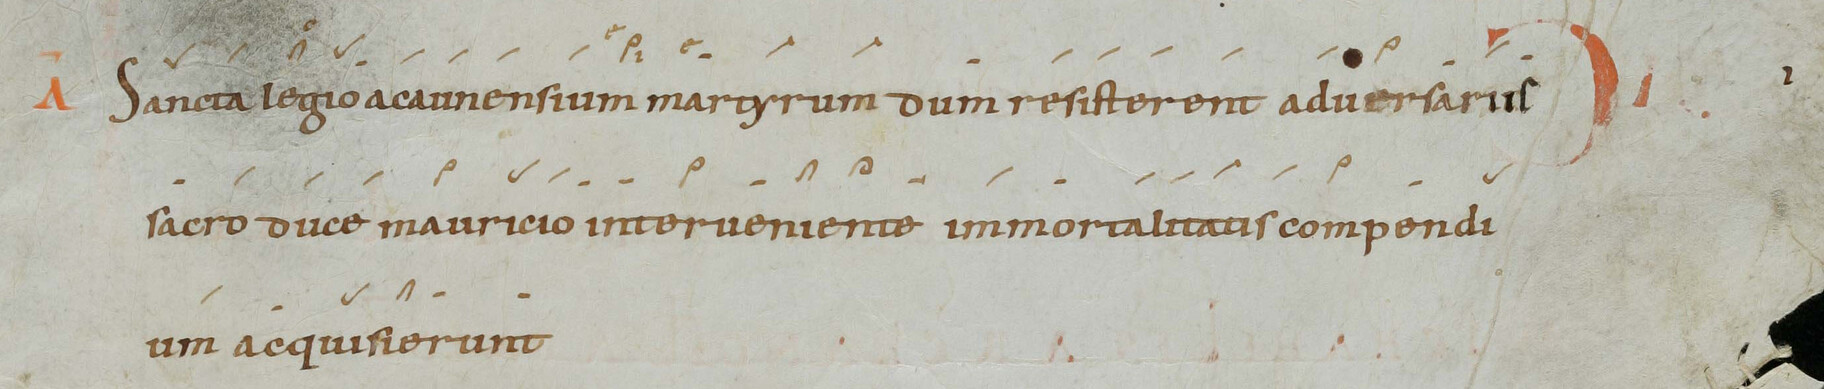 A Sancta legio acaunensium martyrum dum resisterent adversariis
sacro duce mauricio interveniente immortalitatis compendi
um acquisierunt